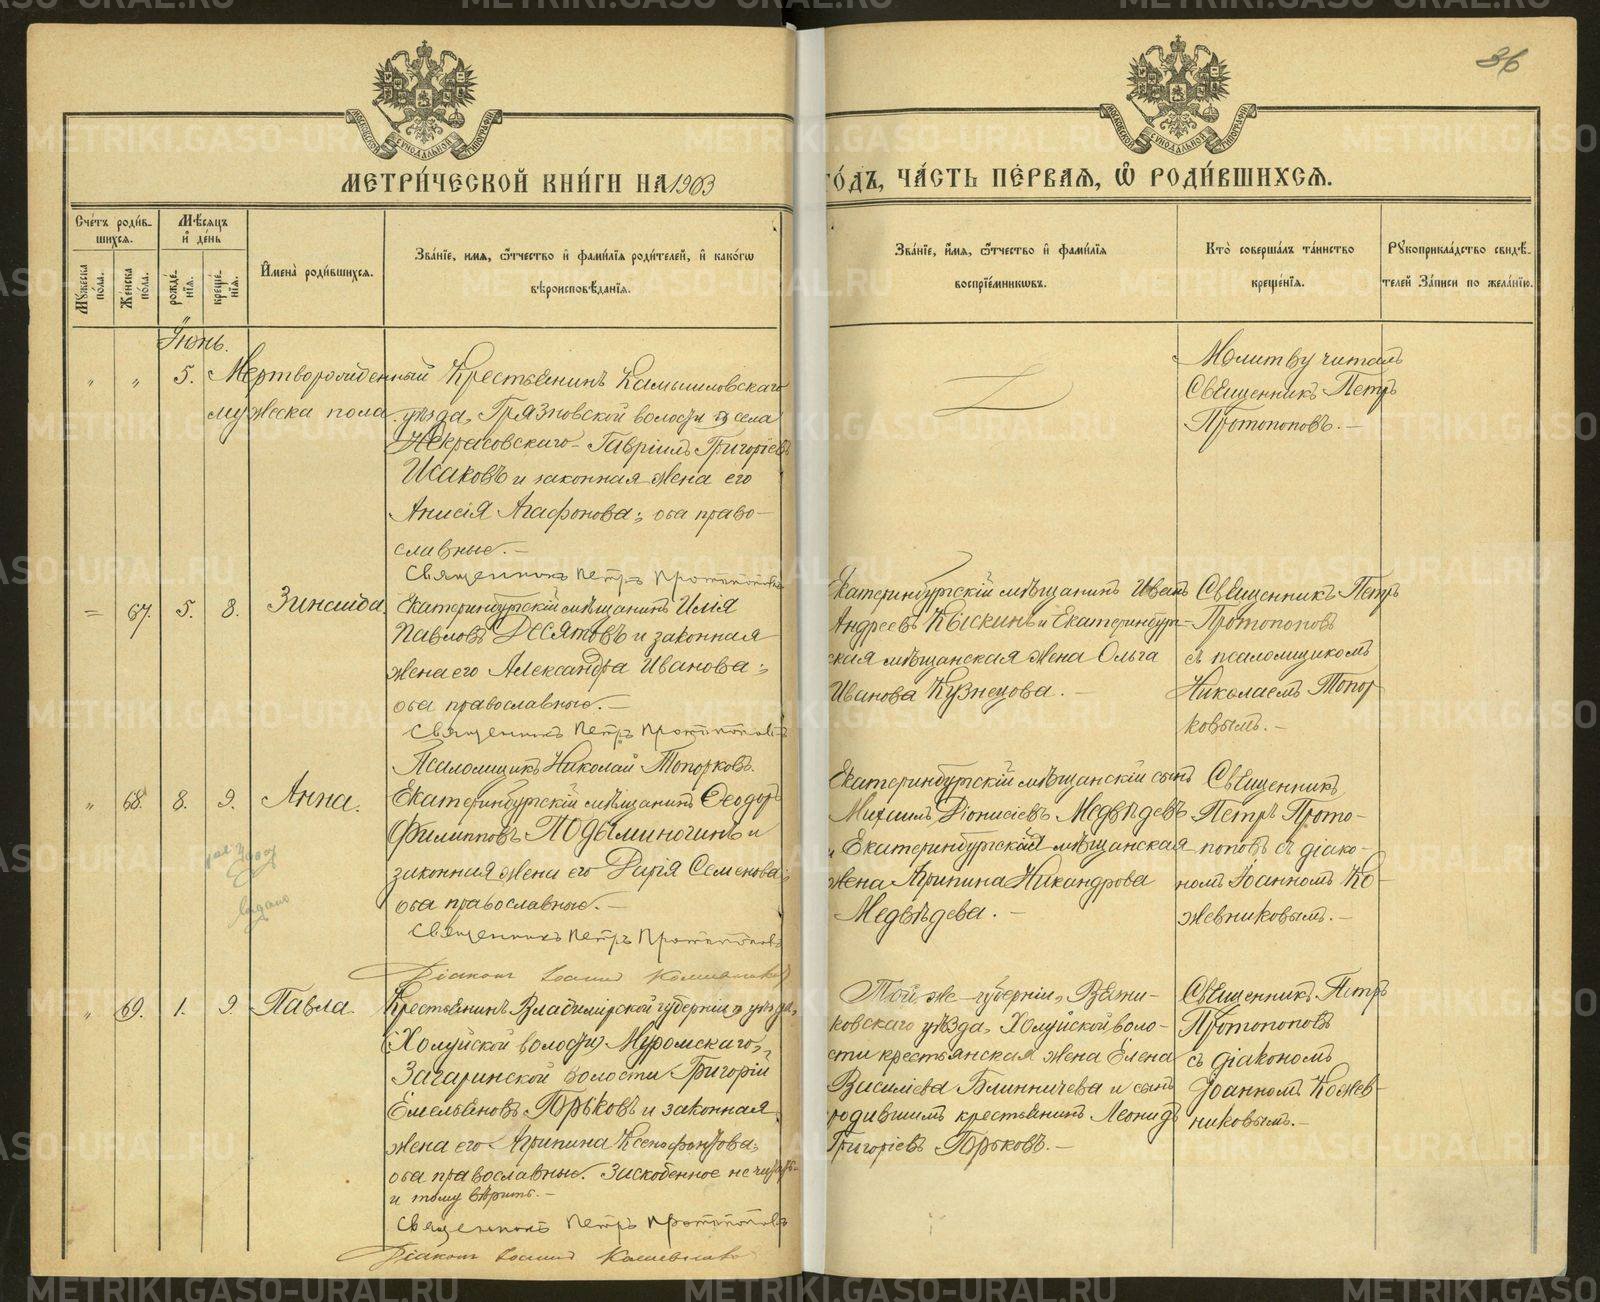 36
МОСКОВСКОЙ СѴНОДАЛЬНОЙ ТИПОГРАФІИ
МОСКОВСКОЙ СѴНОДАЛЬНОЙ ТИПОГРАФІИ
МЕТРИ́ЧЕСКОЙ КНИ́ГИ НА 1903
ГО́ДЪ, ЧА́СТЬ ПЕ́РВАЯ, Ѡ҆ РОДИ́ВШИХСЯ.
Сче́тъ роди́в-
шихся.
Мѣ́сяцъ
и҆ де́нь
Му́жеска по́ла.
Же́нска по́ла.
рожде́нїя.
креще́нїя.
И҆мена̀ роди́вшихся.
Зва́нїе, и҆́мя, ѻ҆́тчество и҆ фами́лїя роди́телей, и҆ како́гѡ
вѣроисповѣ́данїя.
Зва́нїе, и҆́мя, ѻ҆́тчество и҆ фами́лїя
воспрїе́мникѡвъ.
Кто̀ соверша́лъ та́инство
креще́нїя.
Рꙋкоприкла́дство свидѣ́-
телей За́писи по жела́нїю.
Іюнь.
" " 5. Мертворожденный
мужеска пола
Крестьянинъ Камышловскаго
уѣзда, Грязновской волости и села
Некрасовскаго Гавріилъ Григорьевъ
Исаковъ и законная жена его
Анисія Агафонова; оба право-
славные. –
Священникъ Петръ Протопоповъ
Молитву читалъ
Священникъ Петръ
Протопоповъ. –
= 67. 5. 8. Зинаида
Екатеринбургскій мѣщанинъ Илія
Павловъ Десятовъ и законная
жена его Александра Иванова;
оба православные. –
Священникъ Петръ Протопоповъ
Псаломщикъ Николай Топорковъ.
Екатеринбургскій мѣщанинъ Иванъ
Андреевъ Кыскинъ и Екатеринбург-
ская мѣщанская жена Ольга
Иванова Кузнецова. –
Священникъ Петръ
Протопоповъ
съ псаломщикомъ
Николаемъ Топор
ковымъ. –
" 68. 8. 9. Анна.
Екатеринбургскій мѣщанинъ Ѳеодоръ
Филипповъ Подъминогинъ и
законная жена его Дарія Семенова;
оба православные. –
Священникъ Петръ Протопоповъ
Діаконъ Іоаннъ Кожевниковъ
Екатеринбургскій мѣщанскій сынъ
Михаилъ Діонисіевъ Медвѣдевъ
и Екатеринбургская мѣщанская
жена Агрипина Никандрова
Медвѣдева. –
Священникъ
Петръ Прото-
поповъ съ діако-
номъ Іоанномъ Ко-
жевниковымъ. –
" 69. 1. 9. Павла.
Крестьянинъ Владимірской губерніи и уѣзда,
(Холуйской волости) Муромскаго,
Загаринской волости Григорій
Емельяновъ Горьковъ и законная
жена его Агрипина Ксенофонтова;
оба православные. Заскобенное не читать
и тому вѣрить. –
Священникъ Петръ Протопоповъ
Діаконъ Іоаннъ Кожевниковъ
Той же губерніи, Вязни-
ковскаго уѣзда, Холуйской воло-
сти крестьянская жена Елена
Василіева Блинничева и сынъ
родившимъ крестьянинъ Леонидъ
Григоріевъ Горьковъ. –
Священникъ Петръ
Протопоповъ
съ діакономъ
Іоанномъ Кожев-
никовымъ. –
METRIKI.GASO-URAL.RU